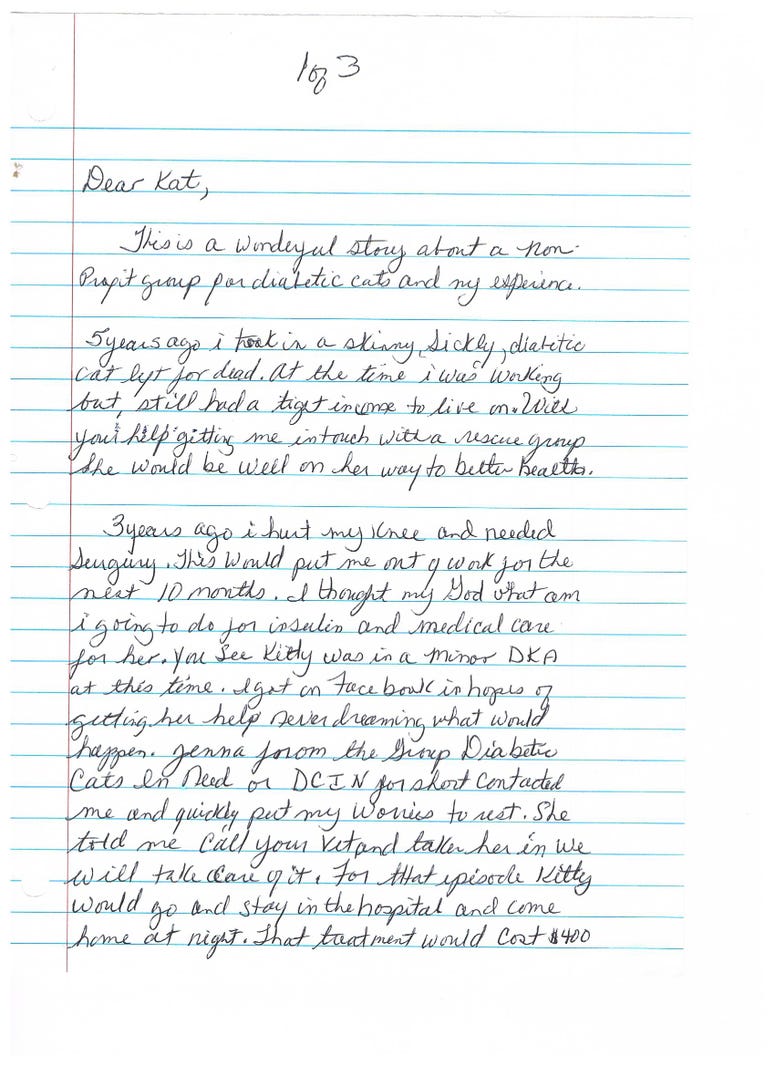 1 of 3
Dear Kat,
This is a wonderful story about a non-
Profit group for diabetic cats and my experience.
5 years ago i took in a skinny, sickly, diabetic
cat left for dead. At the time i was working
but, still had a tight income to live on. With
your help getting me in touch with a rescue group
She would be well on her way to better health.
3 years ago i hurt my Knee and needed
Sengury. This would put me out of work for the
next 10 months. I thought my God what am
i going to do for insulin and medical care
for her. You See Kitty was in a minor DKA
at this time. I got on Facebook in hopes of
getting her help never dreaming what would
happen. Jenna forom the Group Diabetic
Cats In Need or DCIN for short Contacted
me and quickly put my Worries to rest. She
told me Call your Vet and taker her in we
will take care of it. For that episode Kitty
would go and stay in the hospital and come
home at night. That taatment would Cost $400